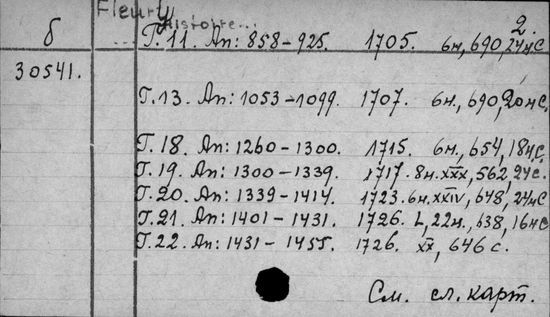 Fleury
Histoire... 2.
б
T. 11. An: 858–925. 1705. 6н, 690, 24нС
30541.
T. 13. An: 1053–1099. 1707. 6н., 690, 20нС,
T. 18. An: 1260–1300. 1715. 6н., 654, 18нС
T. 19. An: 1300–1339. 1717. 8н. XXX, 562, 24С.
T. 20. An: 1339–1414. 1723. 6н. XXIV, 648, 24нС
T. 21. An: 1401–1431. 1726. L, 22н., 638, 16нС
T. 22. An: 1431–1455. 1726. XX, 646 с.
См. сл. карт.